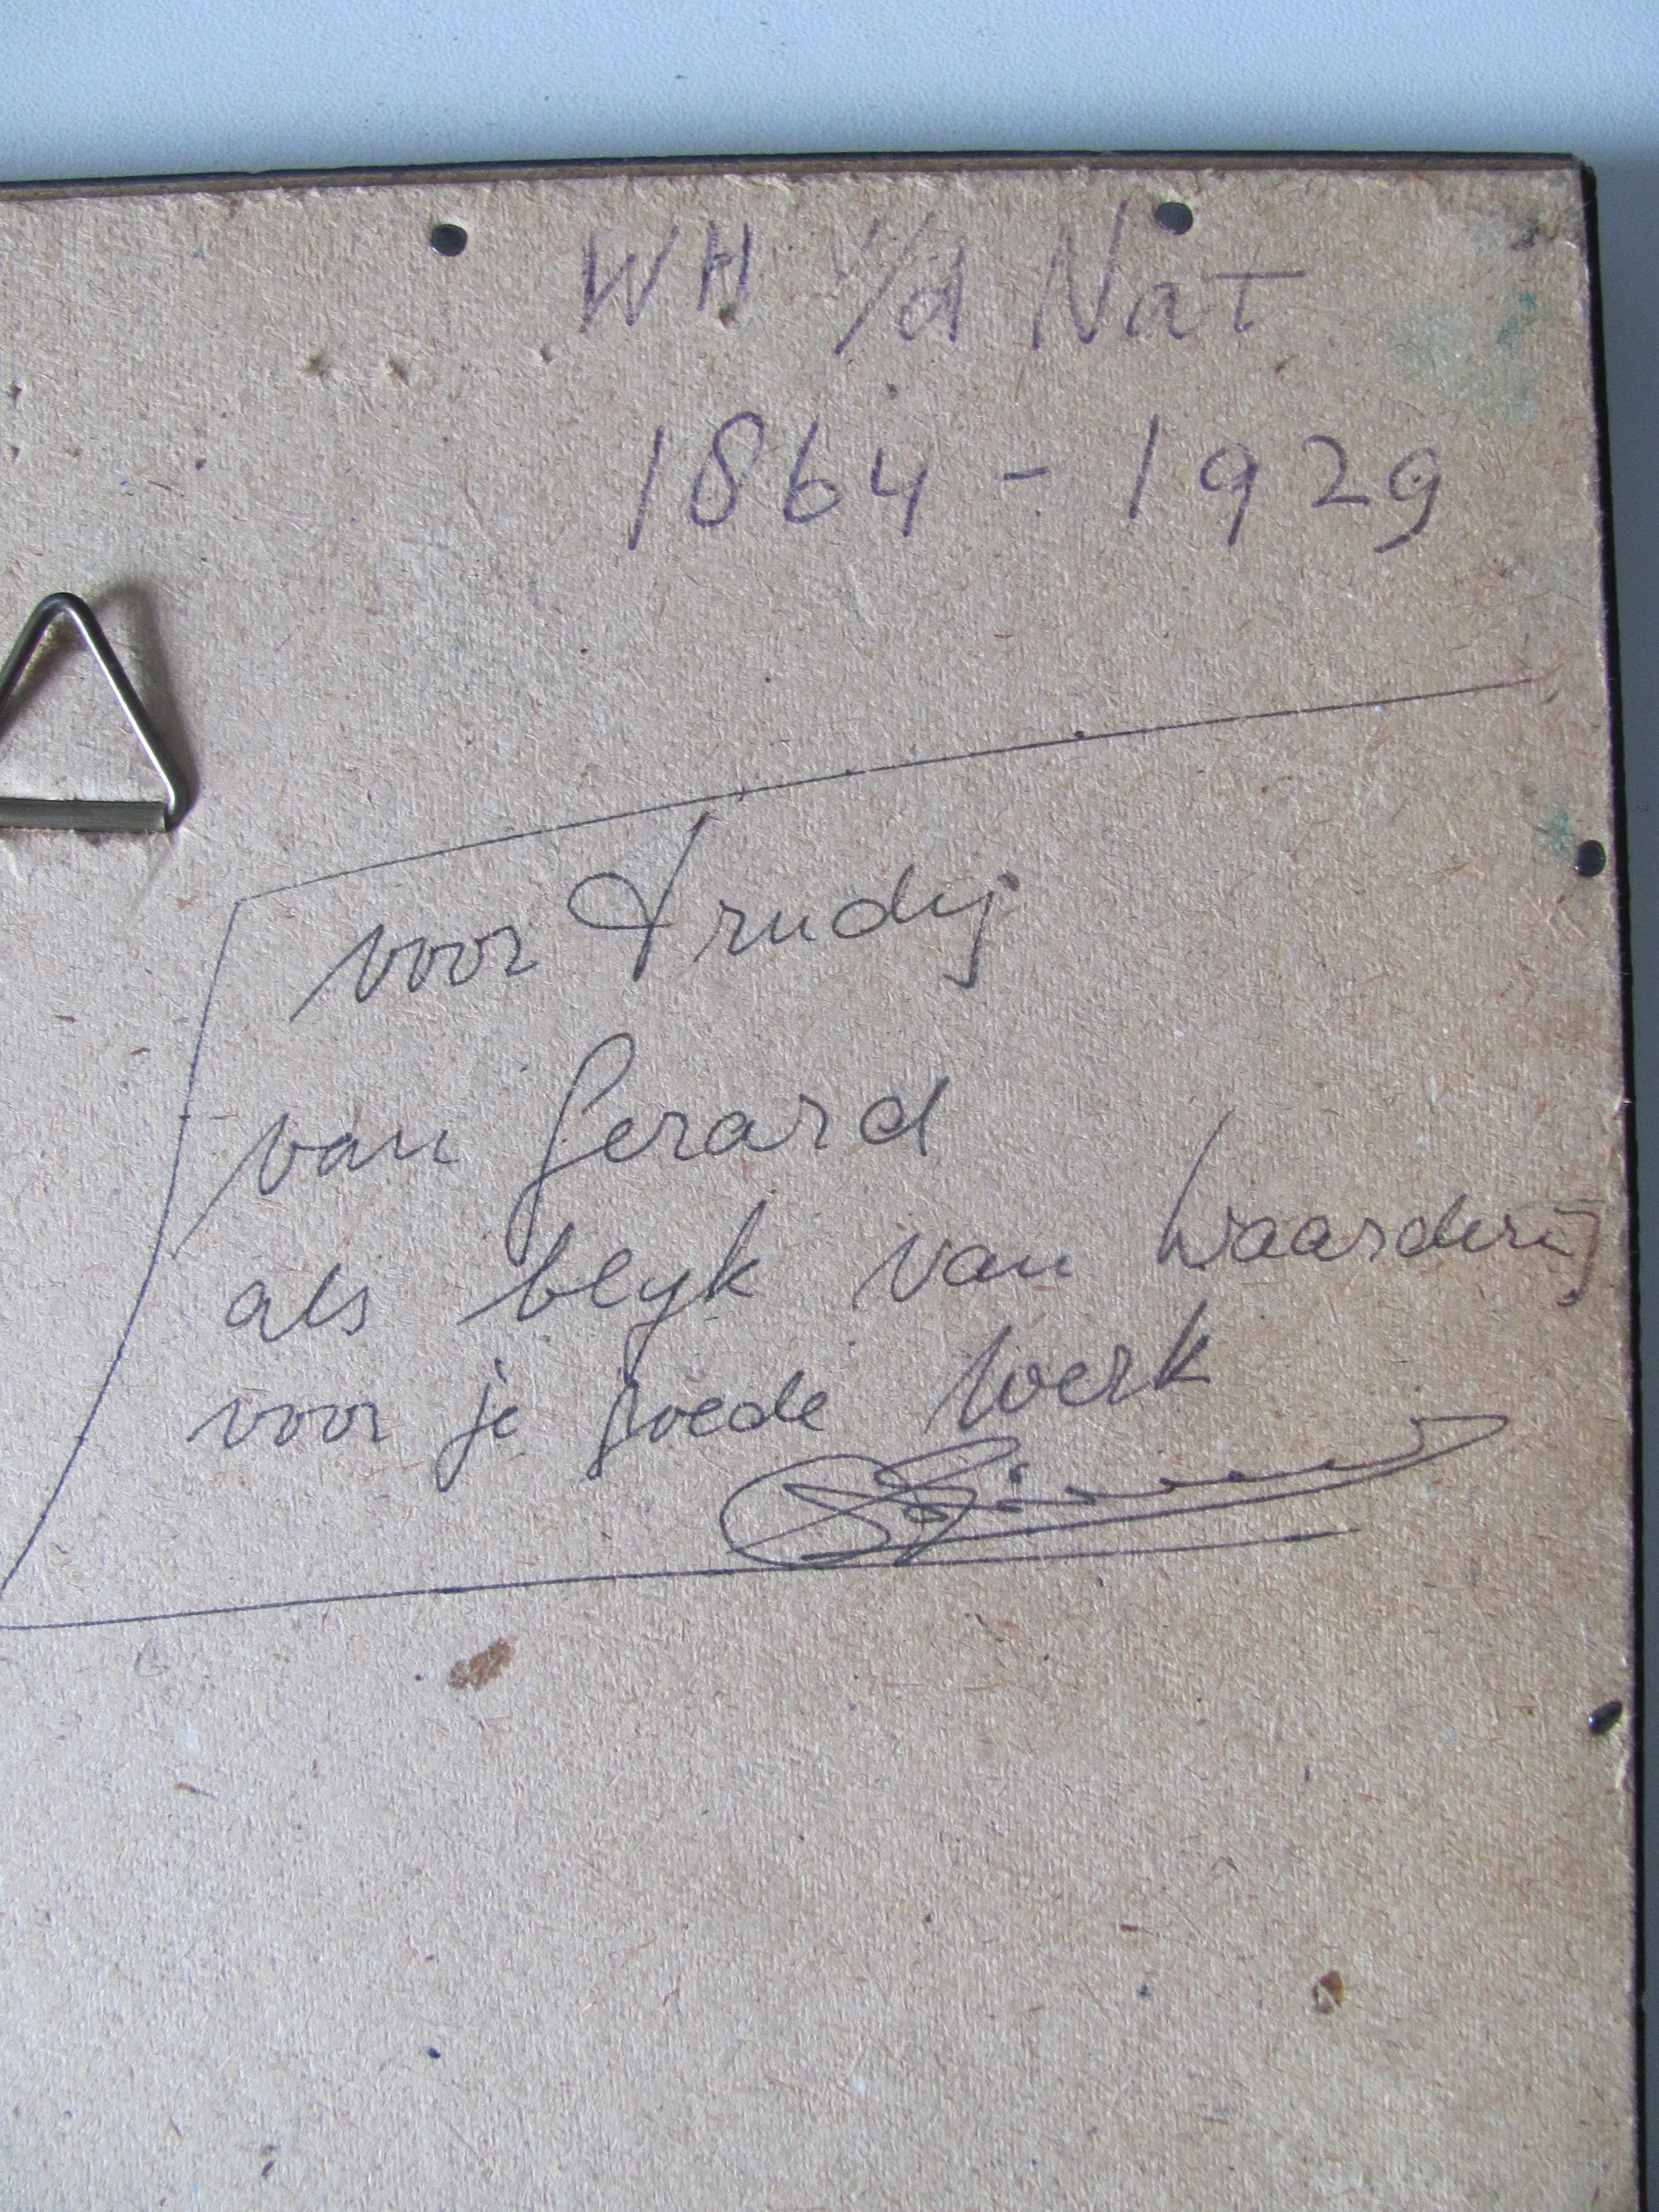 WH v/d Nat
1864 - 1929
voor Trudij
van Gerard
als blijk van waardering
voor je goede werk